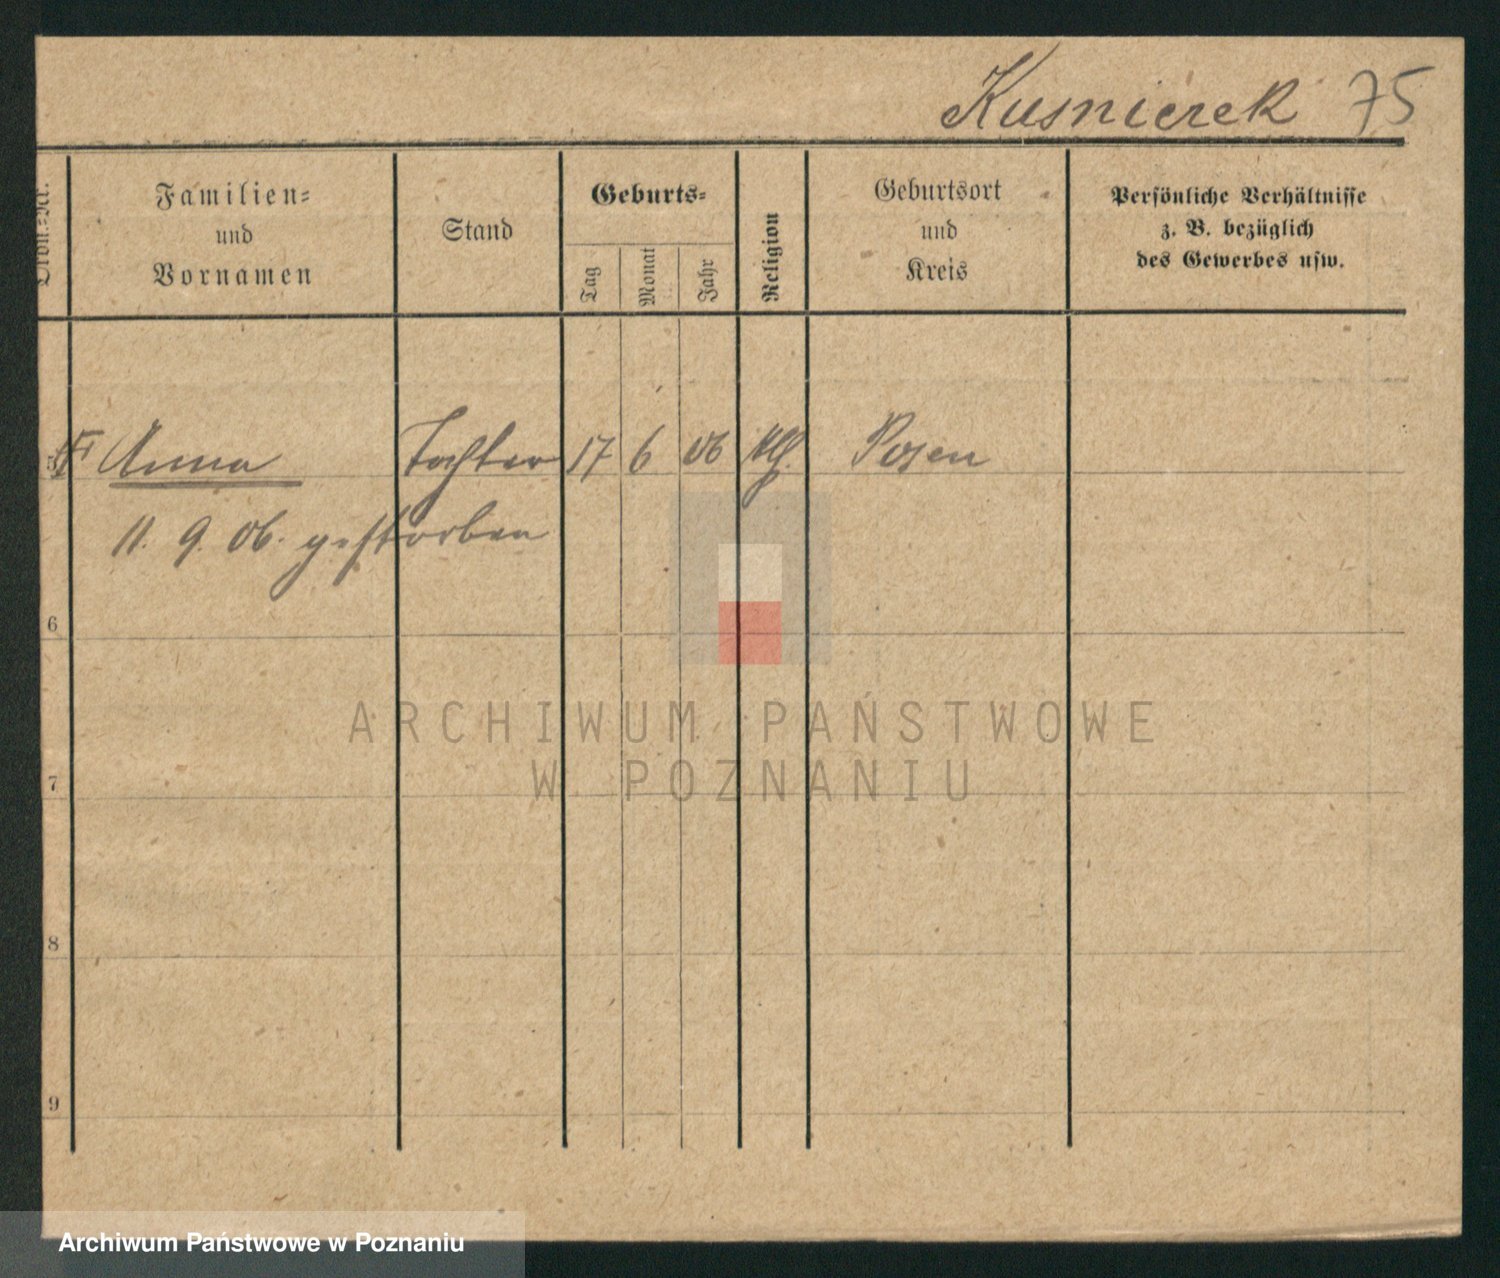 Kusnierek 75
Ordn.-Nr.
Familien-
und
Vornamen
Stand
Geburts-
Tag
Monat
Jahr
Religion
Geburtsort
und
Kreis
Persönliche Verhältnisse
z. B. bezüglich
des Gewerbes usw.
5 Anna Tochter 17 6 06 kth. Posen
11. 9. 06. gestorben
6
7
8
9
ARCHIWUM PAŃSTWOWE
W POZNANIU
Archiwum Państwowe w Poznaniu